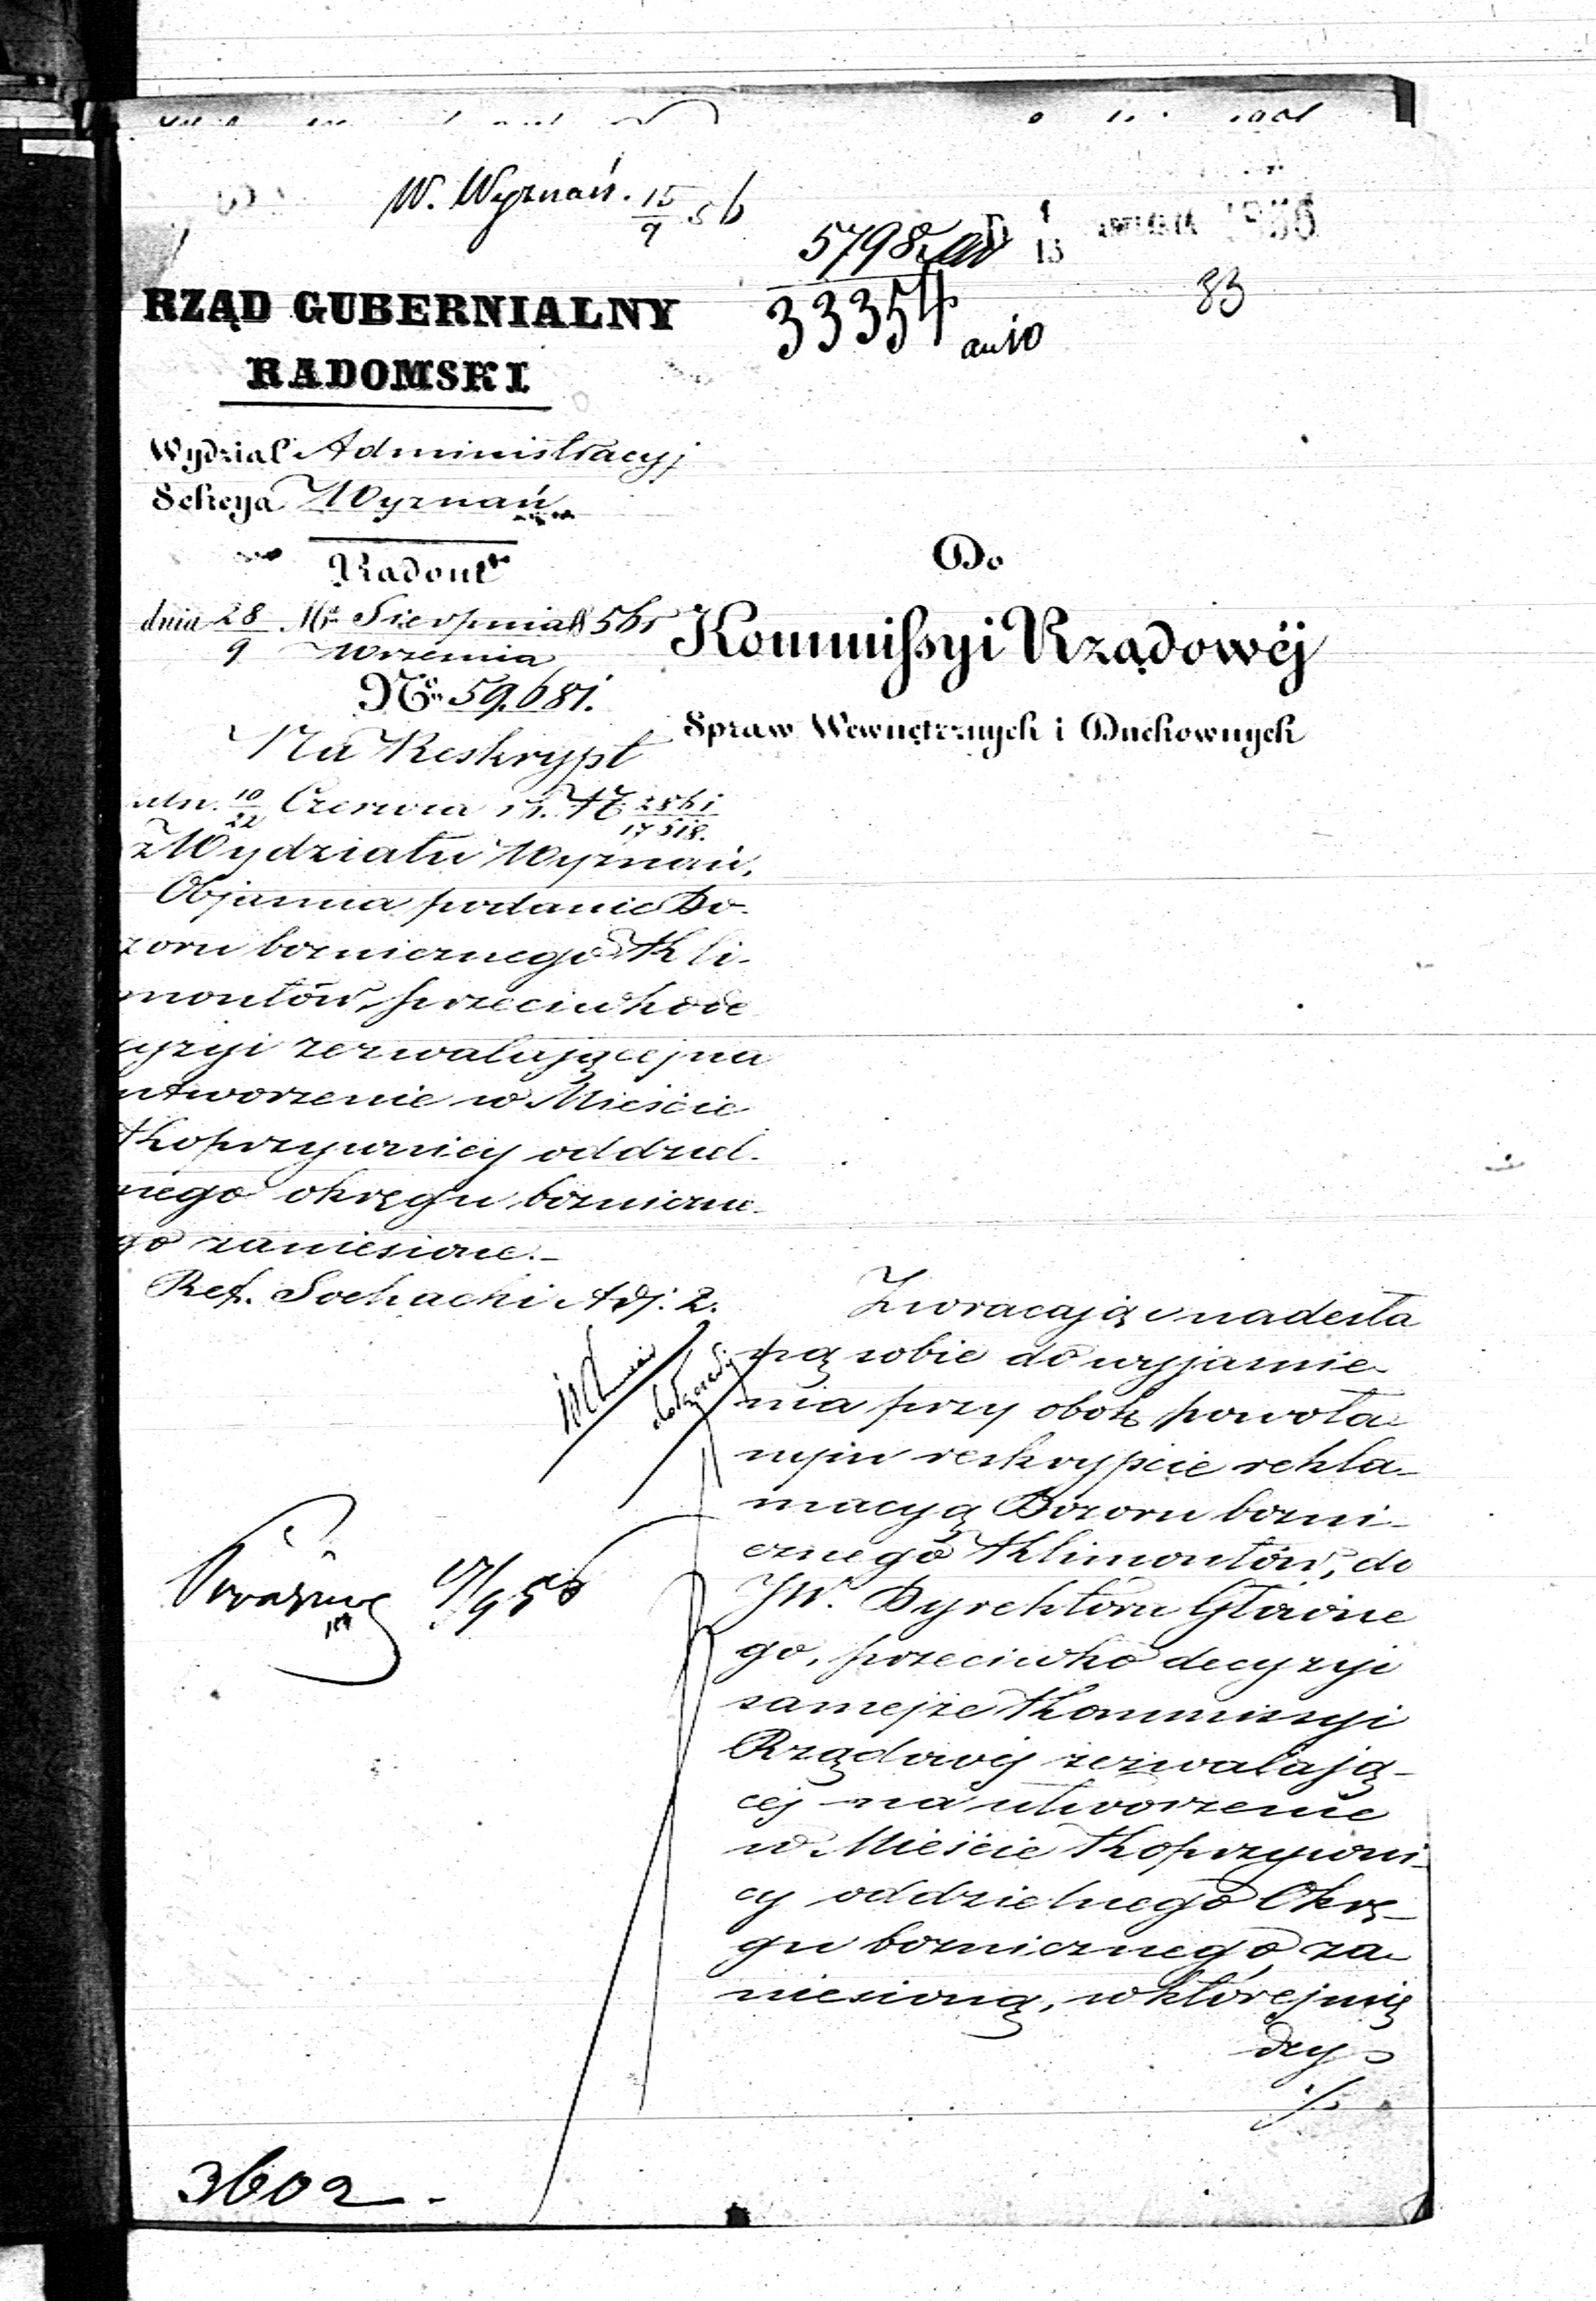 W. Wyznań. 15/9 56
5798
33354
1/13 1856
83
RZĄD GUBERNIALNY
RADOMSKI
Wydział Administracyj
Sekcya Wyznań
Radom
dnia 28/9 Mca Sierpnia/Września 1856 r
No 59,681.
Na Reskrypt
z dn. 10/22 Czerwca r. b. N 2861/17518.
z Wydziału Wyznań,
Objaśnia podanie Do-
zoru bożniczego Kli-
montów, przeciwko de
cyzyi zezwalającej na
utworzenie w Mieście
Koprzywnicy oddziel-
nego okręgu bożniczne-
go zaniesione.-
Ref. Sochacki Adj. 2.
Do
Kommissyi Rządowéj
Spraw Wewnętrznych i Duchownych
Zwracając nadesła
ną sobie do wyjaśnie-
nia przy obok powoła
nym reskrypcie rekla-
macyą Dozoru bożni-
cznego Klimontów, do
JW. Dyrektora Główne
go, przeciwko decyzyi
samejże Kommissyi
Rządowéj zezwalają-
cej na utworzenie
w Mieście Koprzywni-
cy oddzielnego Okrę-
gu bożnicznego za-
niesioną, w której mię
dzy
17/9 56
3602.